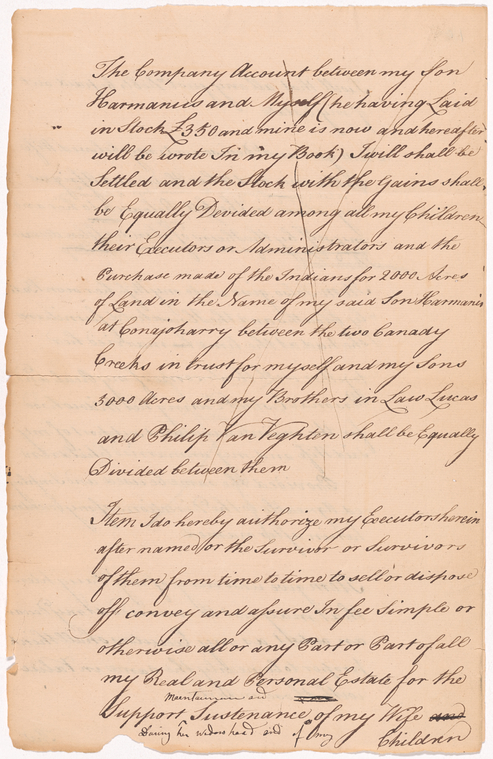 The Company Account between my Son
Harmanus and Myself (he having Laid
in Stock £350 and mine is now and hereafter
will be wrote In my Book) I will shall be
Settled and the Stock with the Gains shall
be Equally Devided among all my Children
their Executors or Administrators and the
Purchase made of the Indians for 2000 Acres
of Land in the Name of my said Son Harmanis
at Conajoharry between the two Canady
Creeks in trust for myself and my Sons
5000 Acres and my Brothers in Law Lucas
and Philip Van Veghten shall be Equally
Divided between them
Item I do hereby authorize my Executors herein
after named or the Survivor or Survivors
of them from time to time to sell or dispose
off convey and assure In fee Simple or
otherwise all or any Part or Part of all
my Real and Personal Estate for the
Maintainance and
Support, Sustenance of my Wife and
During her widowhood and of my
Children